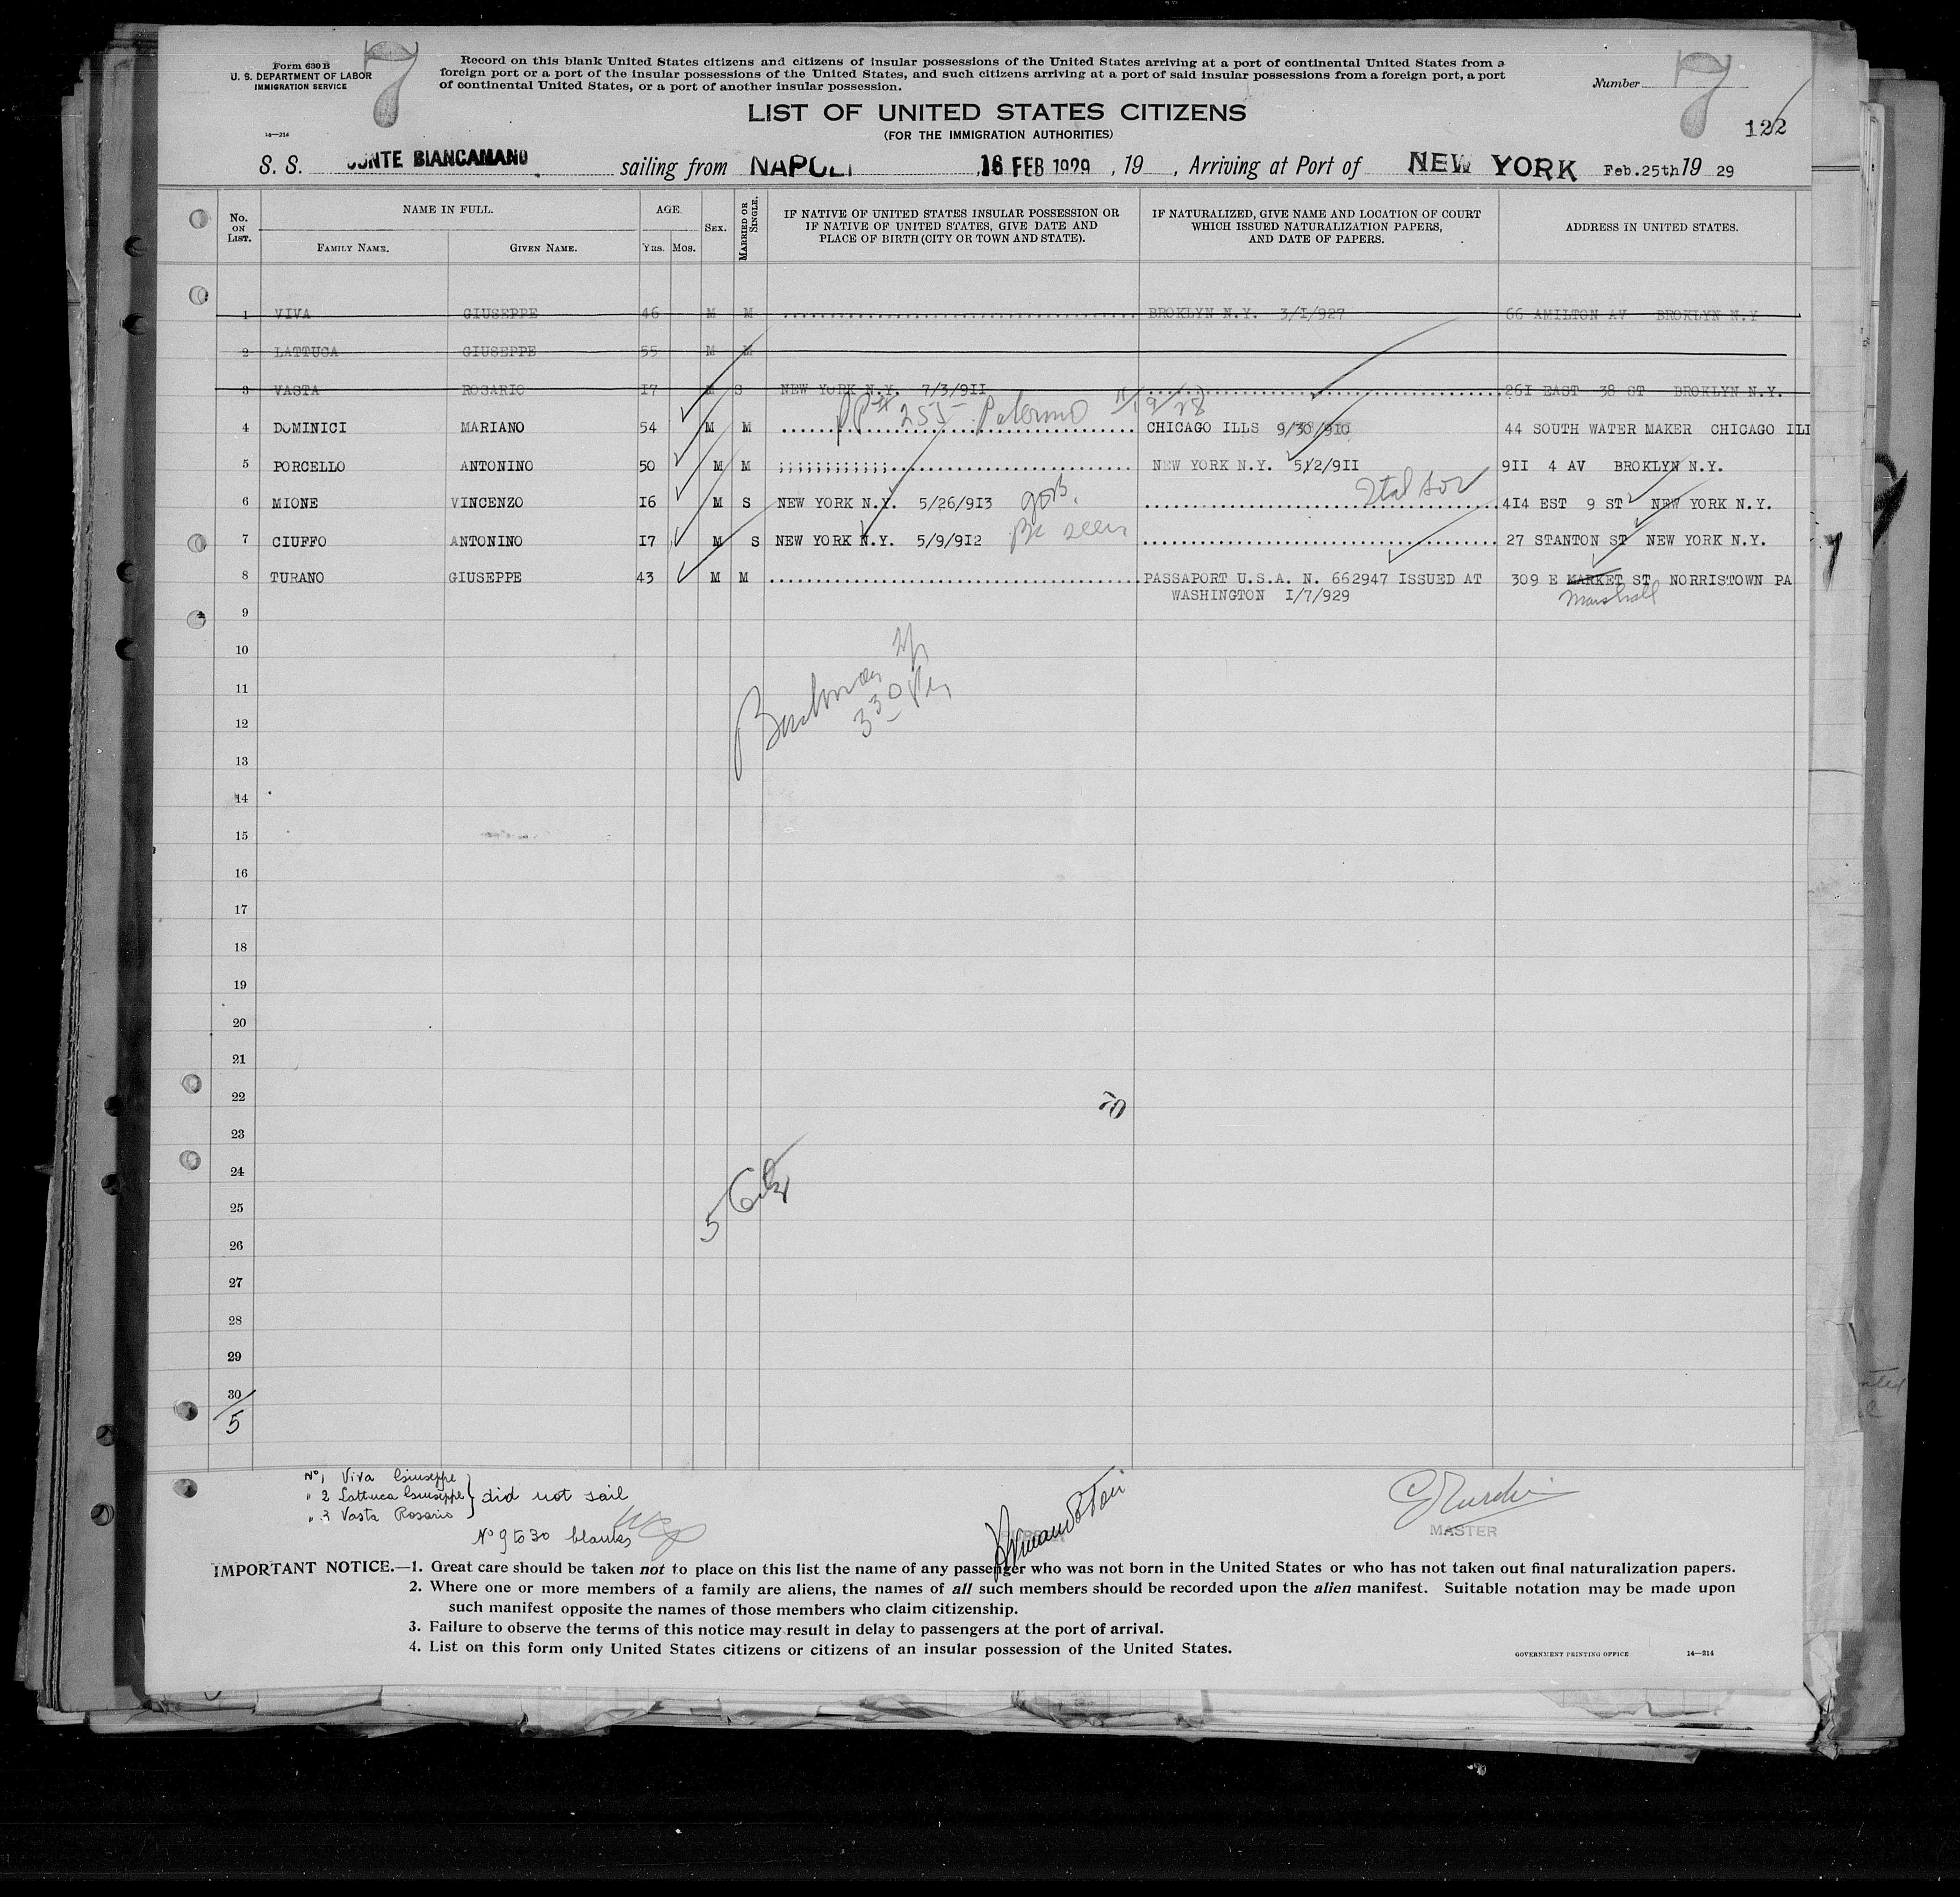 Form 630 B
U. S. DEPARTMENT OF LABOR
IMMIGRATION SERVICE
14—214
7
Record on this blank United States citizens and citizens of insular possessions of the United States arriving at a port of continental United States from a
foreign port or a port of the insular possessions of the United States, and such citizens arriving at a port of said insular possessions from a foreign port, a port
of continental United States, or a port of another insular possession.
Number 7
122
LIST OF UNITED STATES CITIZENS
(FOR THE IMMIGRATION AUTHORITIES)
S. S. CONTE BIANCAMANO sailing from NAPOLI, 16 FEB 1929, 19 , Arriving at Port of NEW YORK Feb.25th 19 29
No. ON LIST.
NAME IN FULL.
FAMILY NAME. GIVEN NAME.
AGE.
Yrs. Mos.
SEX.
MARRIED OR SINGLE.
IF NATIVE OF UNITED STATES INSULAR POSSESSION OR
IF NATIVE OF UNITED STATES, GIVE DATE AND
PLACE OF BIRTH (CITY OR TOWN AND STATE).
IF NATURALIZED, GIVE NAME AND LOCATION OF COURT
WHICH ISSUED NATURALIZATION PAPERS,
AND DATE OF PAPERS.
ADDRESS IN UNITED STATES.
1 VIVA GIUSEPPE 46 M M BROKLYN N.Y. 3/I/927 66 AMILTON AV BROKLYN N.Y
2 LATTUCA GIUSEPPE 55 M M
3 VASTA ROSARIO I7 M S NEW YORK N.Y. 7/3/9II 26I EAST 38 ST BROKLYN N.Y.
PP# 255 Palermo 11/19/28
4 DOMINICI MARIANO 54 M M CHICAGO ILLS 9/30/910 44 SOUTH WATER MAKER CHICAGO ILI
5 PORCELLO ANTONINO 50 M M ;;;;;;;;;;;; NEW YORK N.Y. 5/2/9II 9II 4 AV BROKLYN N.Y.
6 MIONE VINCENZO I6 M S NEW YORK N.Y. 5/26/9I3 4I4 EST 9 ST NEW YORK N.Y.
7 CIUFFO ANTONINO I7 M S NEW YORK N.Y. 5/9/9I2 Be seen 27 STANTON ST NEW YORK N.Y.
8 TURANO GIUSEPPE 43 M M PASSAPORT U.S.A. N. 662947 ISSUED AT 309 E MARKET ST NORRISTOWN PA
WASHINGTON I/7/929 Marshall
9
10
11
12
13
14
15
16
17
18
19
20
21
22
23
24
25
26
27
28
29
30
5
No 1 Viva Giuseppe
" 2 Lattuca Giuseppe } did not sail
" 3 Vasta Rosario
No 9 to 30 blanks
MASTER
IMPORTANT NOTICE.—1. Great care should be taken not to place on this list the name of any passenger who was not born in the United States or who has not taken out final naturalization papers.
2. Where one or more members of a family are aliens, the names of all such members should be recorded upon the alien manifest. Suitable notation may be made upon
such manifest opposite the names of those members who claim citizenship.
3. Failure to observe the terms of this notice may result in delay to passengers at the port of arrival.
4. List on this form only United States citizens or citizens of an insular possession of the United States.
GOVERNMENT PRINTING OFFICE 14—214